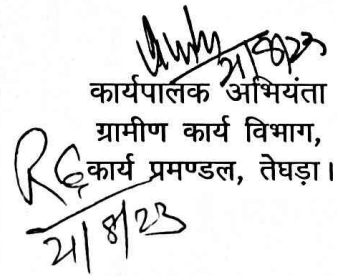 21/8/23
कार्यपालक अभियंता
ग्रामीण कार्य विभाग,
कार्य प्रमण्डल, तेघड़ा।
21/8/23